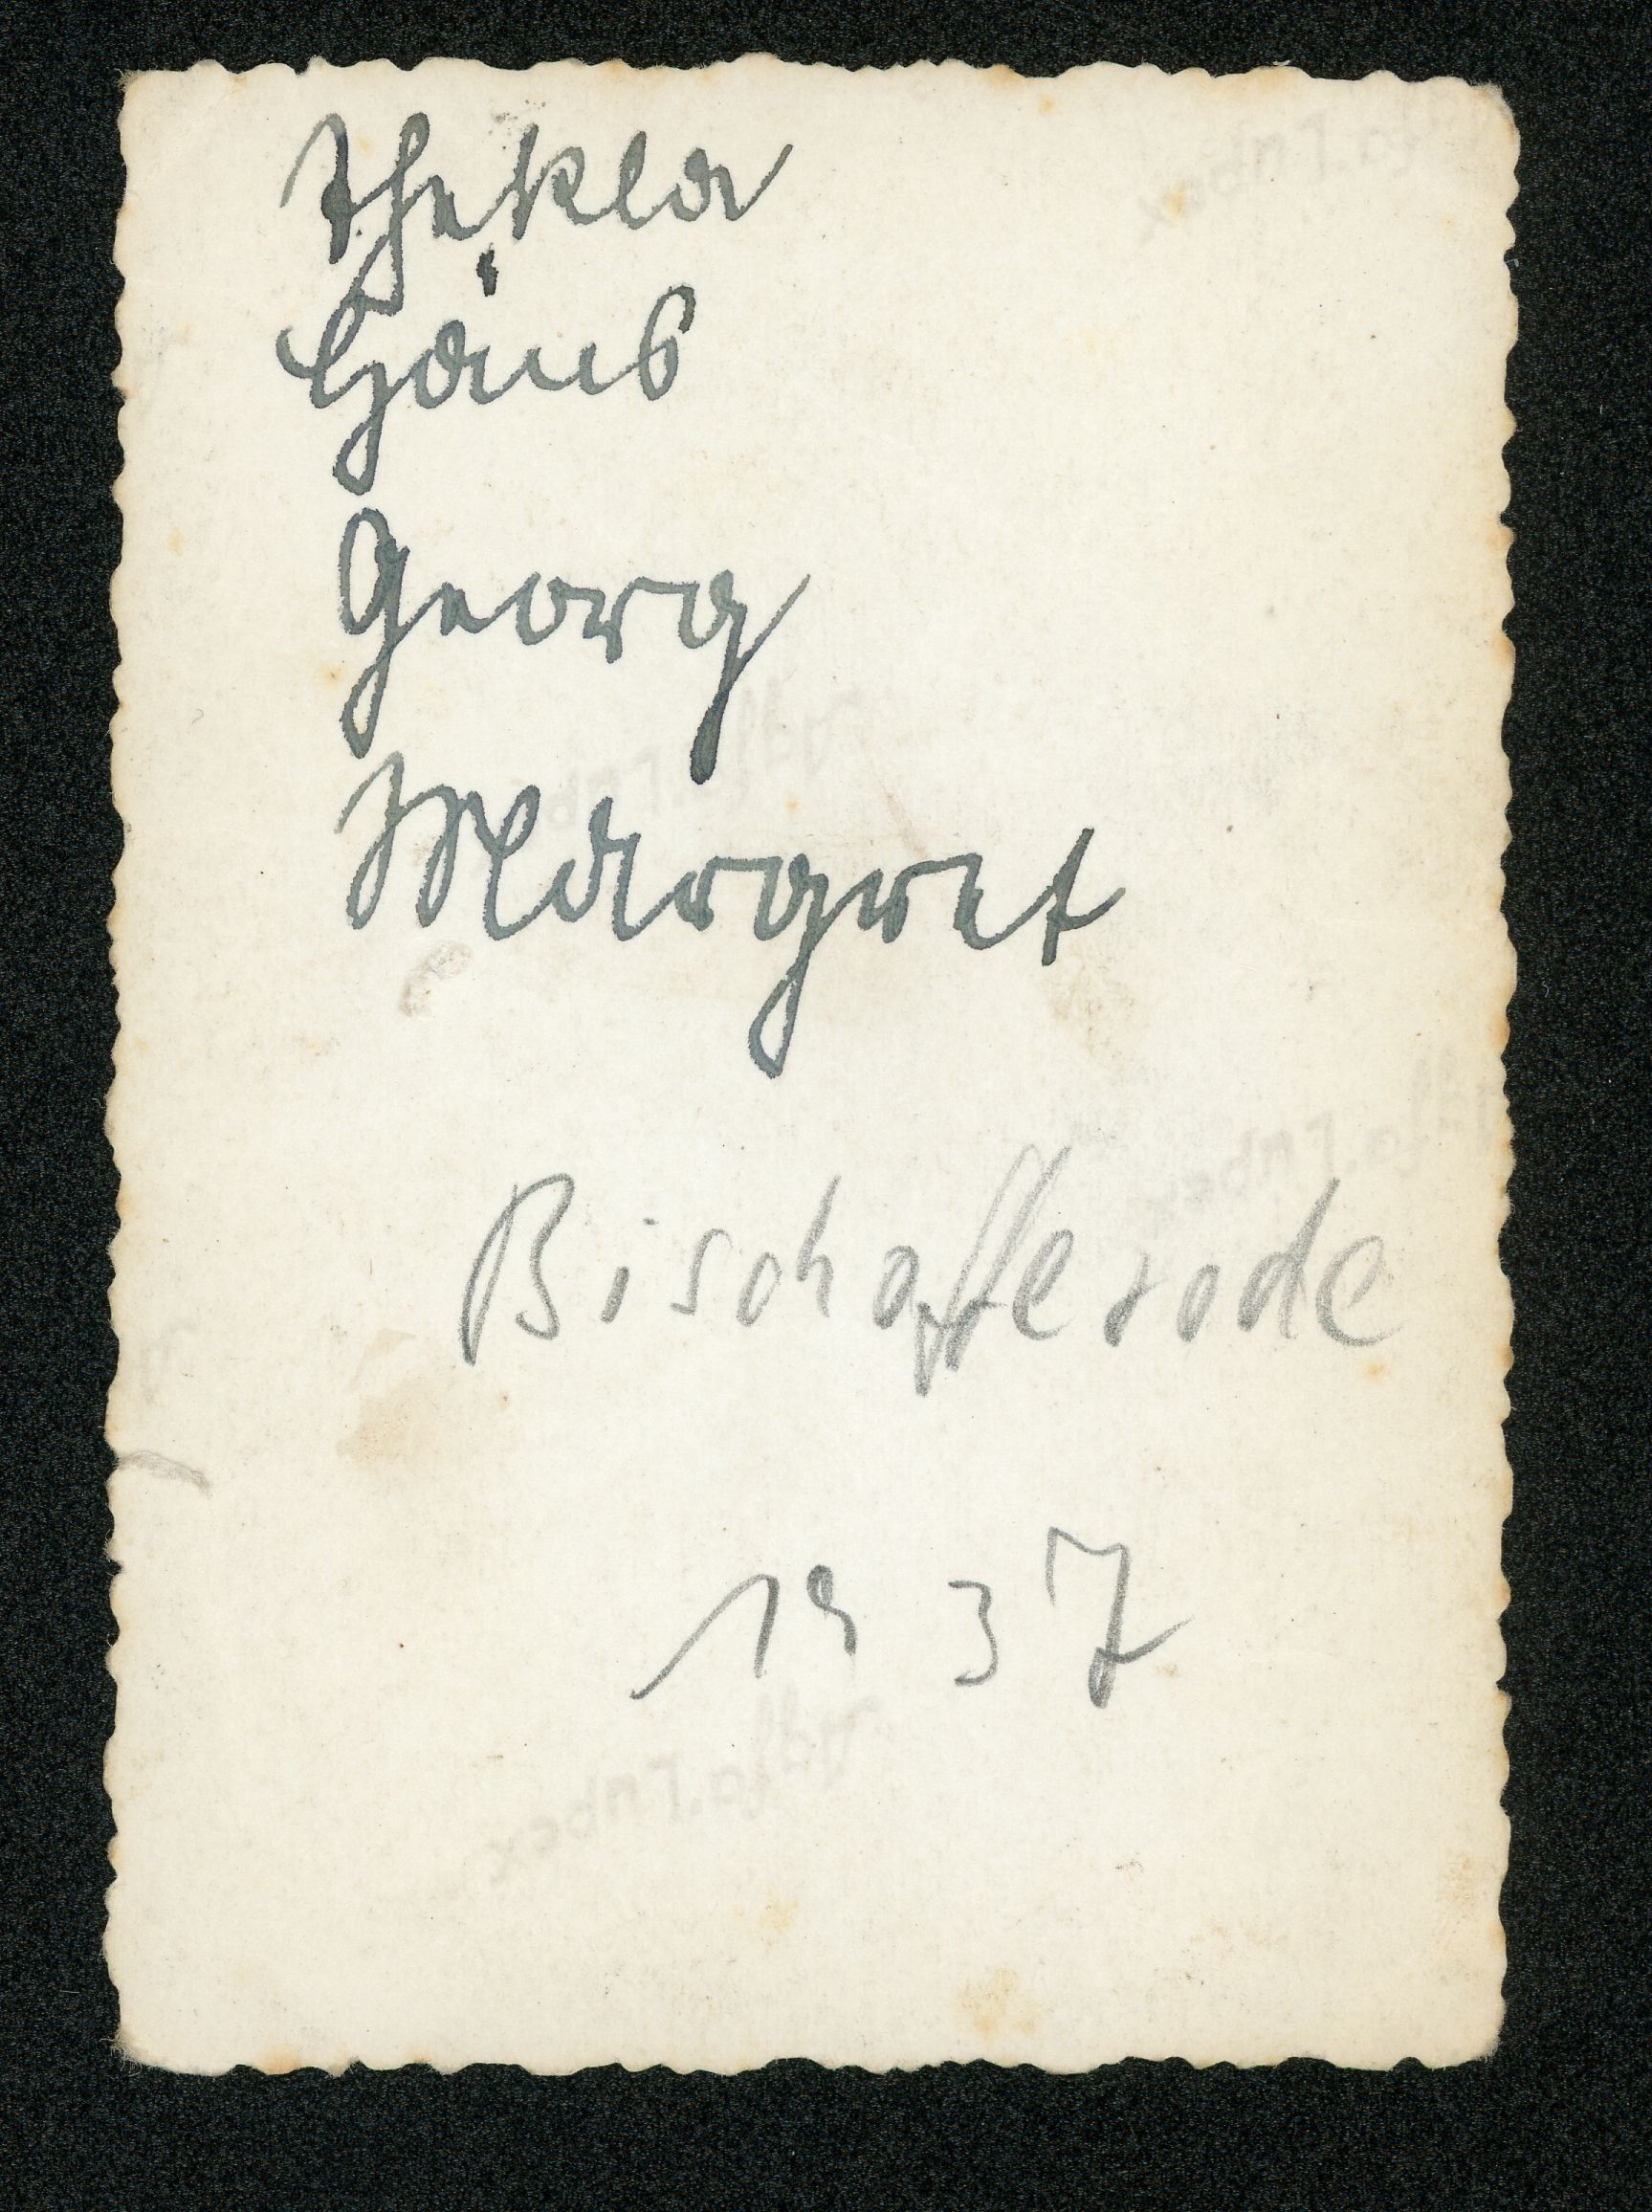 Thekla
Hans
Georg
Margret
Bischofferode
1937